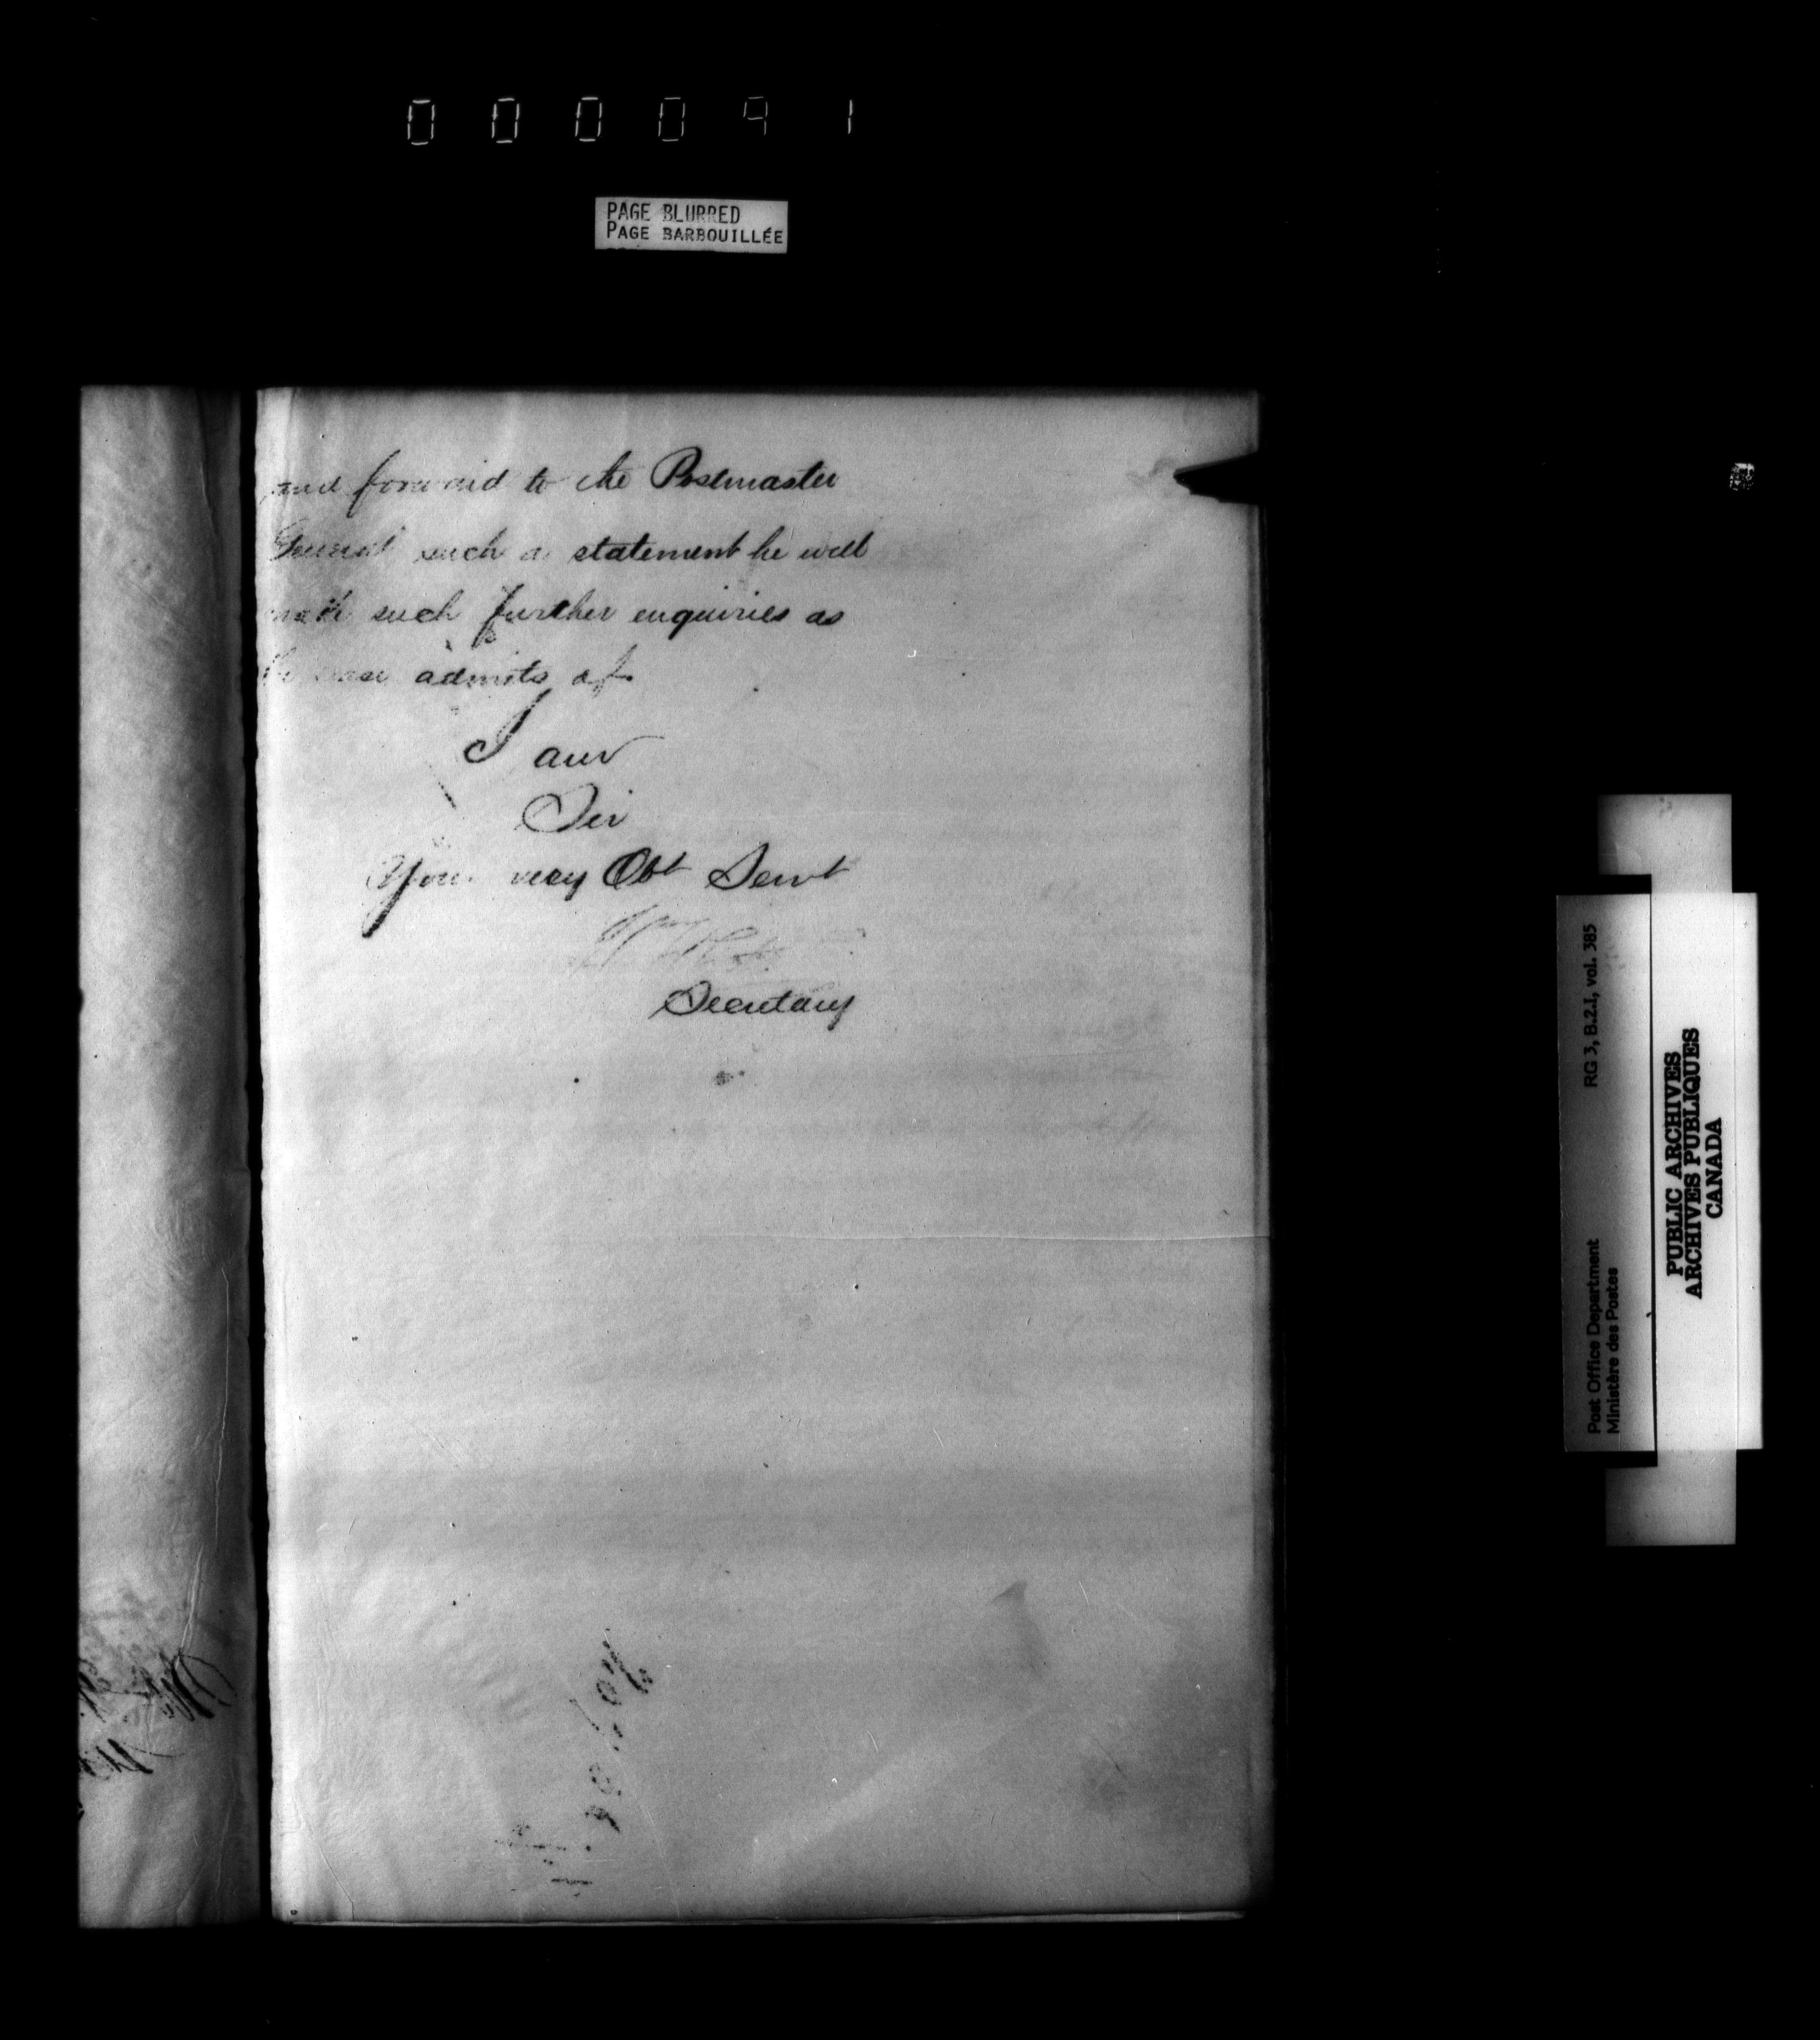 000091
PAGE BLURRED
PAGE BARBOUILLÉE
and forward to the Postmaster
General such a statement he will
make such further enquiries as
the case admits of
I am
Sir
Your very Obt Servt
Secretary
RG 3, B.2.1, vol. 385
Post Office Department
Ministère des Postes
PUBLIC ARCHIVES
ARCHIVES PUBLIQUES
CANADA